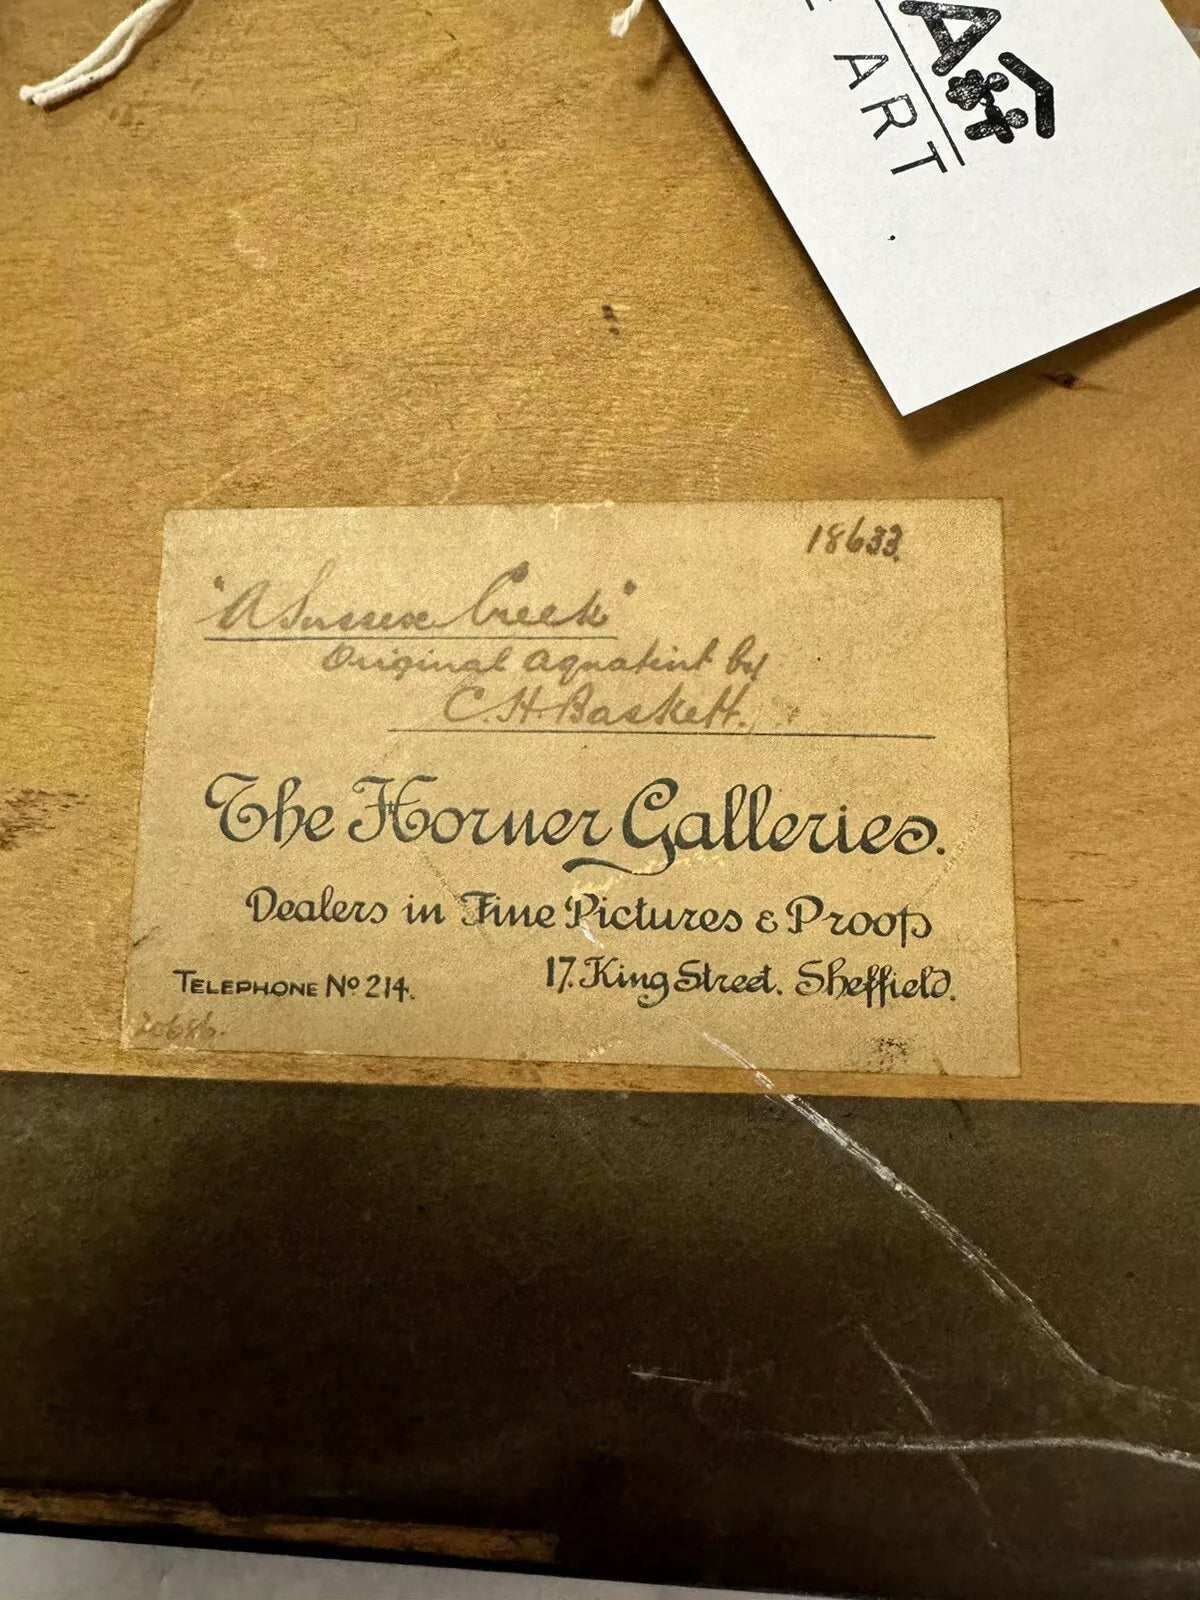 ART
18633
"A Sussex Creek"
Original Aquatint by
C. H. Baskett.
The Horner Galleries.
Dealers in Fine Pictures & Proofs
TELEPHONE Nº 214.
17. King Street. Sheffield.